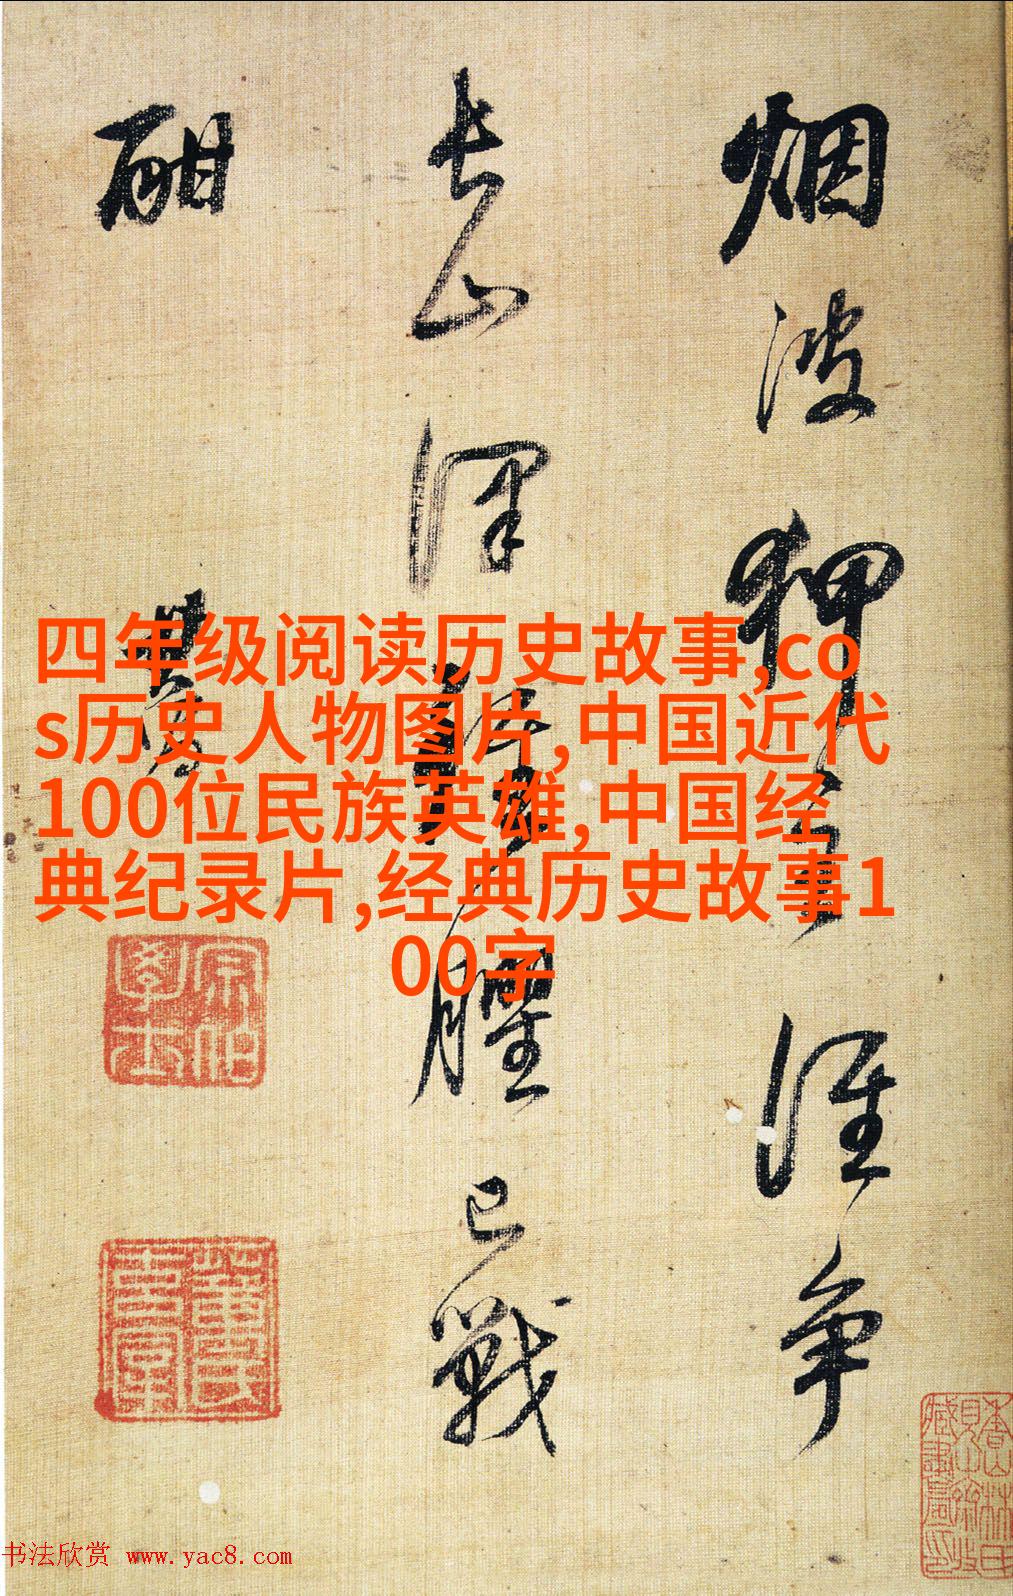 烟波狎主誰争
長山澤已戰
酣
四年级阅读历史故事,co
s历史人物图片,中国近代
100位民族英雄,中国经
典纪录片,经典历史故事1
00字
宗伯學士
书法欣赏 www.yac8.com